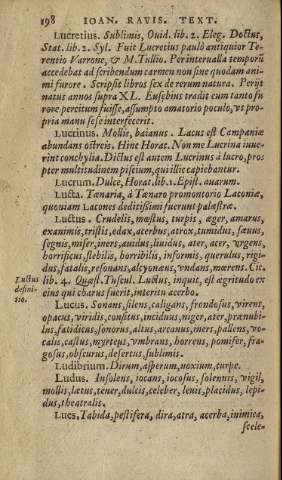 198 IOAN. RAVIS. TEXT.
Lucretius. Sublimis, Ouid. lib. 2. Eleg. Doctus,
Stat. lib. 2. Syl. Fuit Lucretius paulò antiquior Te-
rentio Varrone, & M. Tullio. Per interualla temporū
accedebat ad scribendum carmen non sine quodam ani-
mi furore. Scripsit libros sex de rerum natura. Perijt
natus annos supra XL. Eusebius tradit cum tanto fu
rore percitum fuisse, assumpto amatorio poculo, vt pro-
pria manu sese interfecerit.
Lucrinus. Mollis, baianus. Lacus est Campaniæ
abundans ostreis. Hinc Horat. Non me Lucrina iuue-
rint conchylia. Dictus est autem Lucrinus à lucro, pro-
pter multitudinem piscium, qui illic capiebantur.
Lucrum. Dulce, Horat. lib. 1. Epist. auarum.
Lucta. Tænaria, à Tænaro promontorio Laconiæ,
quoniam Lacones deditissimi fuerunt palæstræ.
Luctus. Crudelis, mœstus, turpis, æger, amarus,
exanimis, tristis, edax, acerbus, atrox, tumidus, sæuus,
segnis, miser, iners, auidus, liuidus, ater, acer, vrgens,
horrificus, flebilis, horribilis, informis, querulus, rigi-
dus, fatalis, resonans, alcyonæus, vndans, mœrens. Cic.
lib. 4. Quæst. Tuscul. Luctus, inquit, est ægritudo ex
eius qui charus fuerit, interitu acerbo.
Luctus
defini-
tio.
Lucus. Sonans, silens, caligans, frondosus, virens,
opacus, viridis, consitus, inciduus, niger, ater, prænubi-
lus, fatidicus, sonorus, altus, arcanus, iners, pallens, vo-
calis, castus, myrteus, vmbrans, horrens, pomifer, fra-
gosus, obscurus, desertus, sublimis.
Ludibrium. Dirum, asperum, noxium, turpe.
Ludus. Insolens, iocans, iocosus, solennis, vigil,
mollis, lætus, tener, dulcis, celeber, lenis, placidus, lepi-
dus, theatralis.
Lues. Tabida, pestifera, dira, atra, acerba, inimica,
scele-